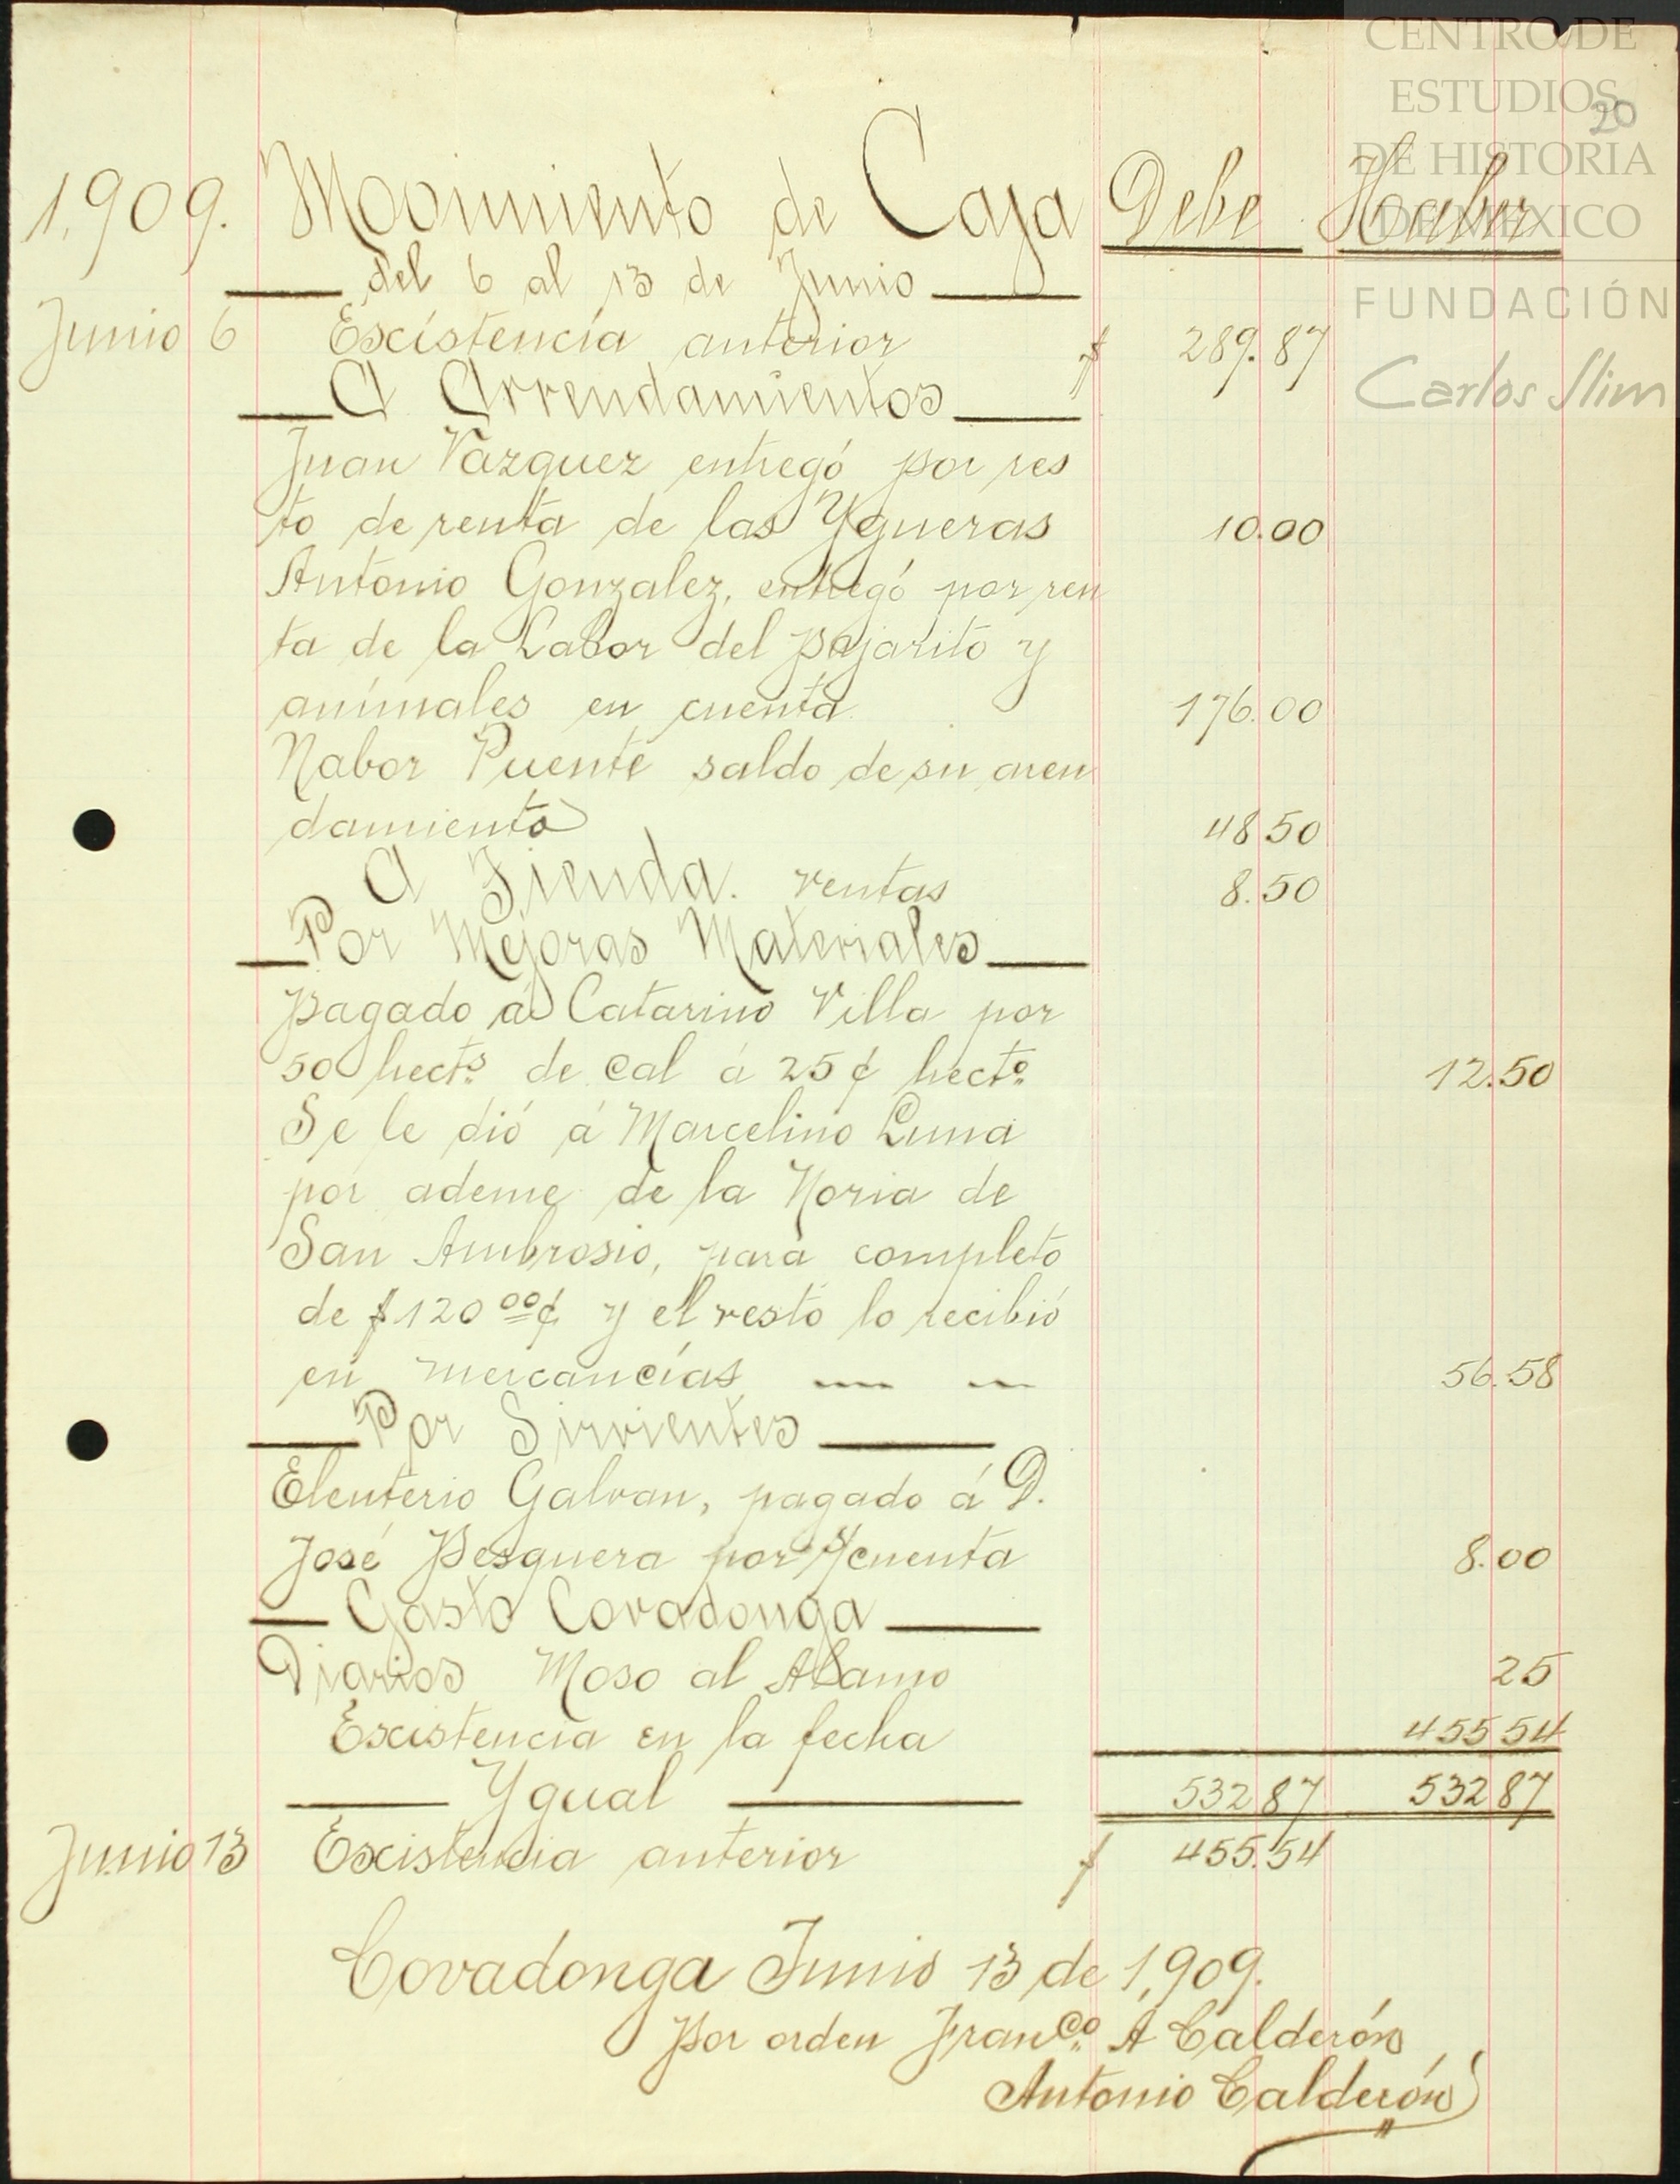 CENTRO DE
ESTUDIOS
DE HISTORIA
DE MÉXICO
FUNDACIÓN
Carlos Slim
20
1,909. Movimiento de Caja Debe Haber
del 6 al 13 de Junio
Junio 6 Excistencia anterior $ 289.87
A Arrendamientos
Juan Vazquez entregó por res
to de renta de las Ygueras 10.00
Antonio Gonzalez, entregó por ren
ta de la Labor del pajarito y
animales en cuenta. 176.00
Nabor Puente saldo de su aren
damiento 48 50
A Tienda. ventas 8.50
Por Mejoras Materiales
pagado á Catarino Villa por
50 hectº de cal á 25 ¢ hectº 12.50
Se le dió á Marcelino Luna
por ademe de la Noria de
San Ambrosio, para completo
de $120 00¢ y el resto lo recibió
en mercancías 56.58
Por Sirvientes
Eleuterio Galvan, pagado á D.
José Pesquera por s/cuenta 8.00
Gasto Covadonga
Diarios Moso al Alamo 25
Excistencia en la fecha 455 54
Ygual 532 87 532 87
Junio 13 Excistencia anterior $ 455.54
Covadonga Junio 13 de 1,909.
Por orden Francº A Calderón
Antonio Calderón